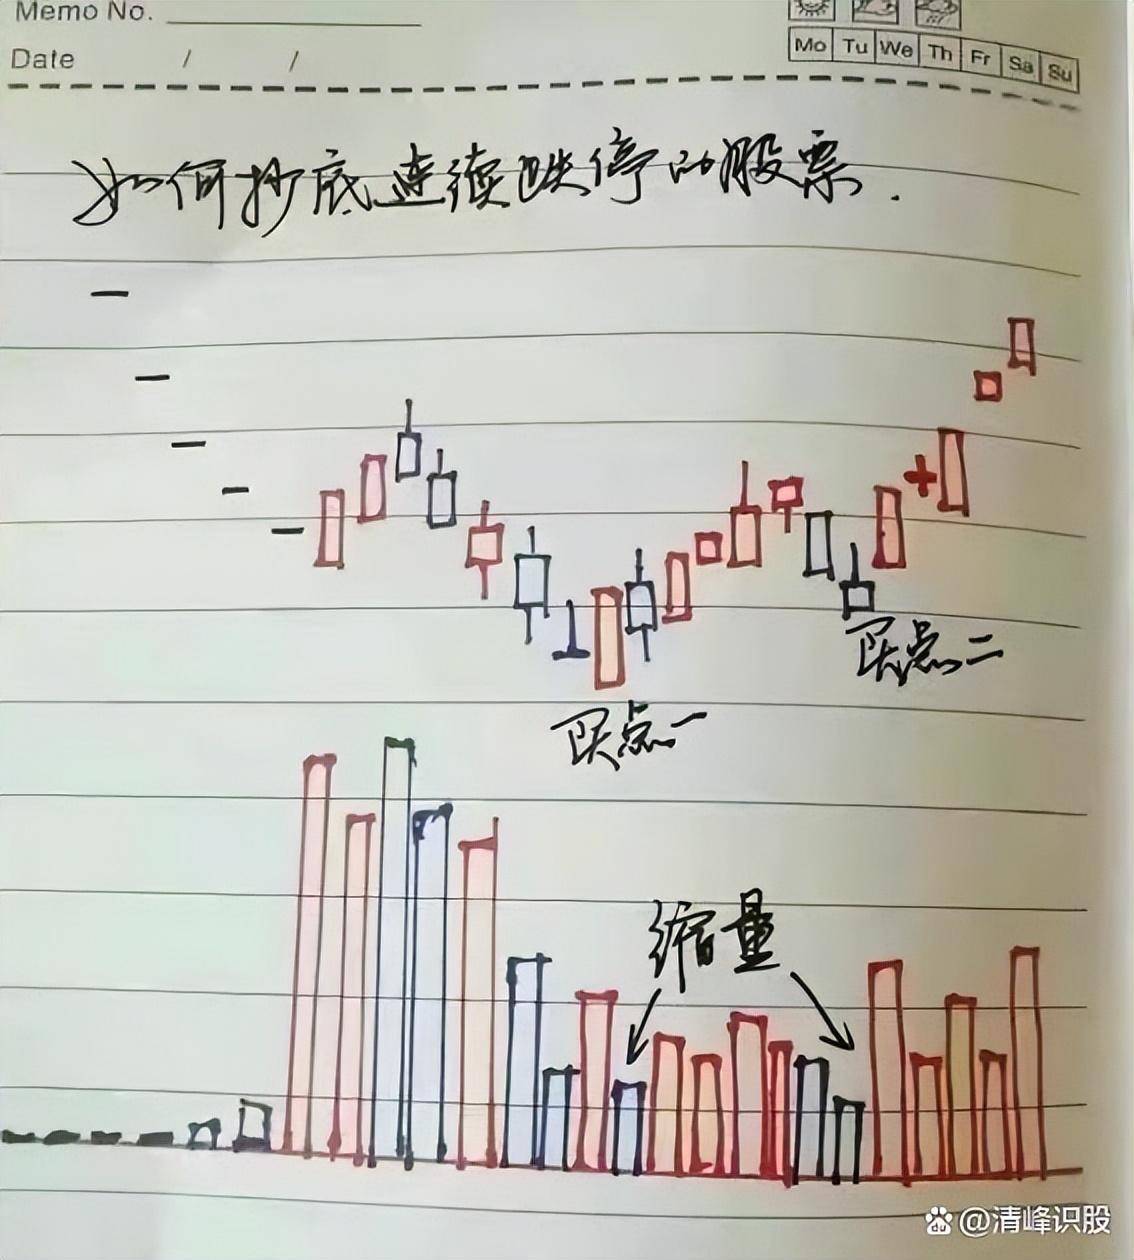 Memo No.
Mo Tu We Th Fr Sa Su
Date / /
如何抄底连续跌停的股票.
买点二
买点一
缩量
@清峰识股